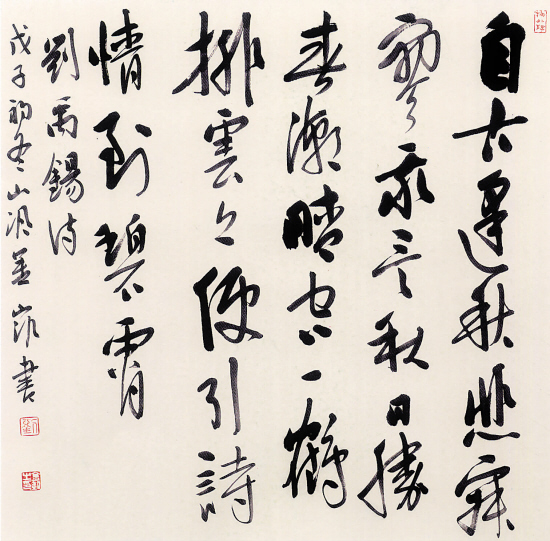 自古逢秋悲寂
寥我言秋日勝
春潮晴空一鶴
排雲上便引詩
情到碧霄
劉禹錫詩
戊子初冬山書